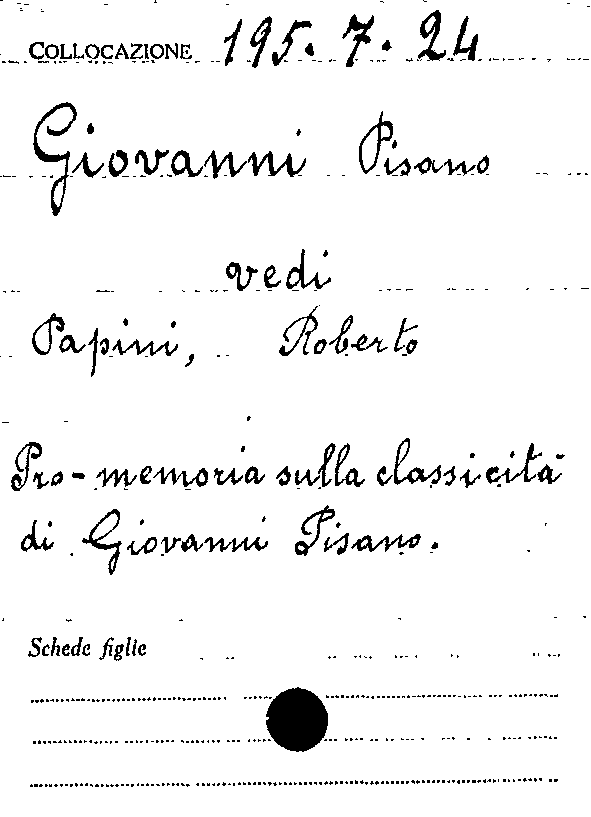 COLLOCAZIONE 195.7.24
Giovanni Pisano
vedi
Papini, Roberto
Pro-memoria sulla classicità
di Giovanni Pisano.
Schede figlie